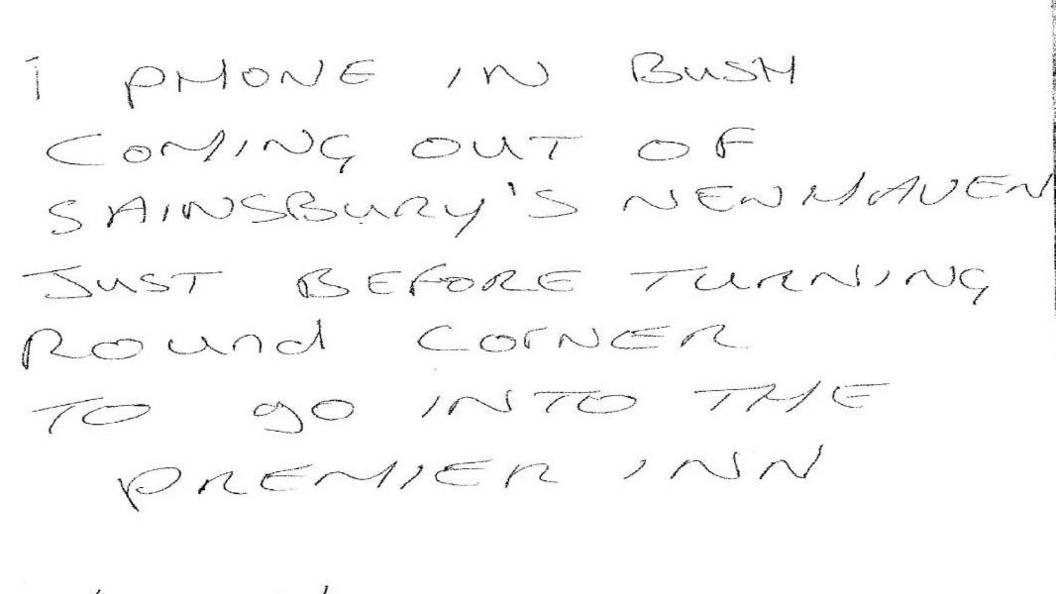 1 PHONE IN BUSH
COMING OUT OF
SAINSBURY'S NEWHAVEN
JUST BEFORE TURNING
ROUnd CORNER
TO go INTO THE
PREMIER INN